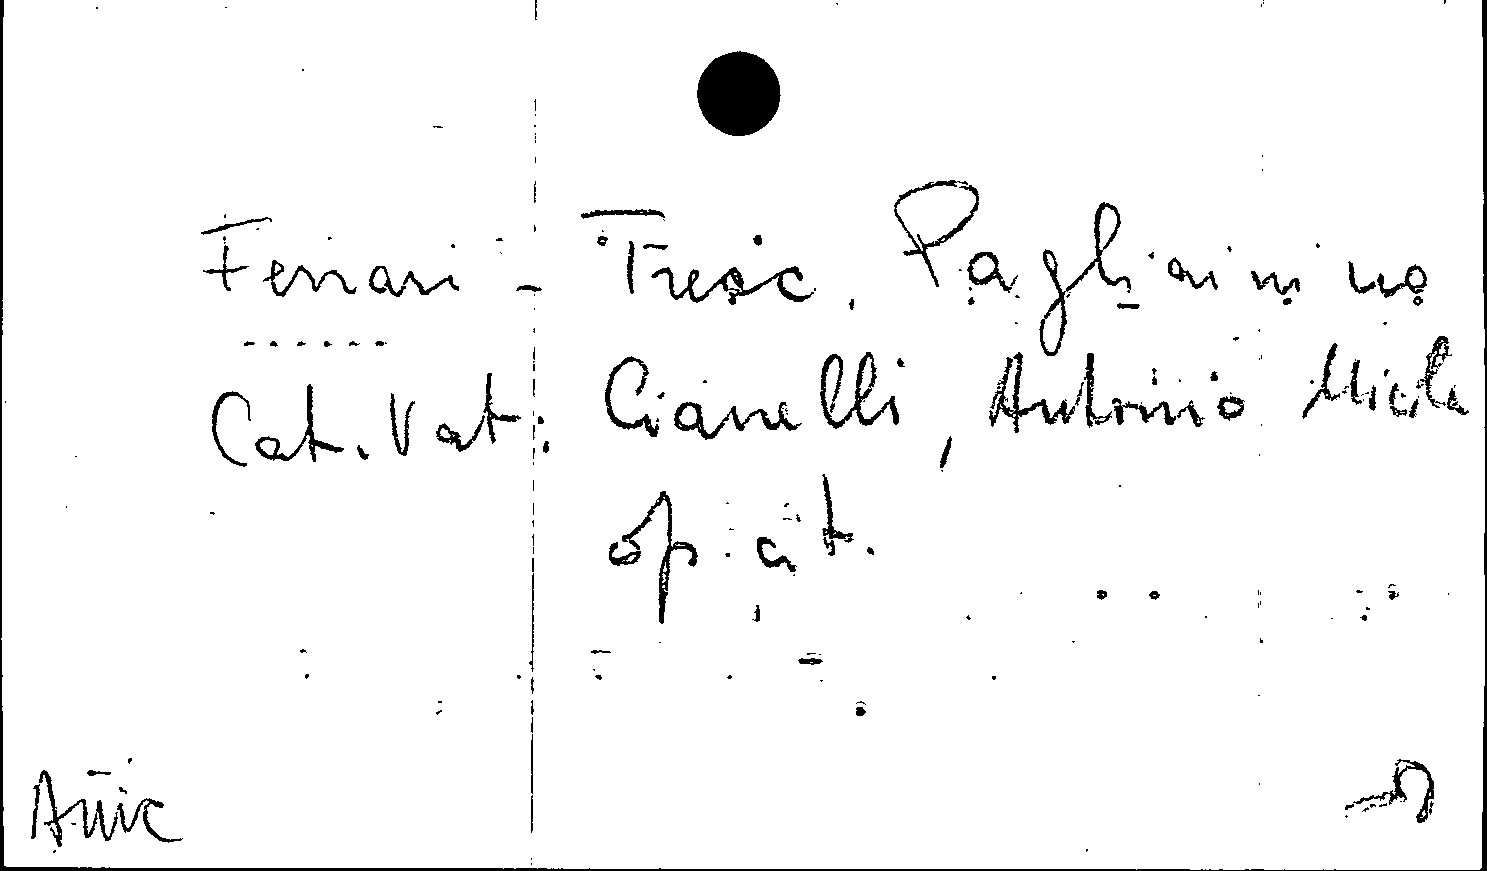 Ferrari - Tresc. Pagliarino
Cat. Vat: Cianelli, Antonio Nicola
op. cit.
Anic